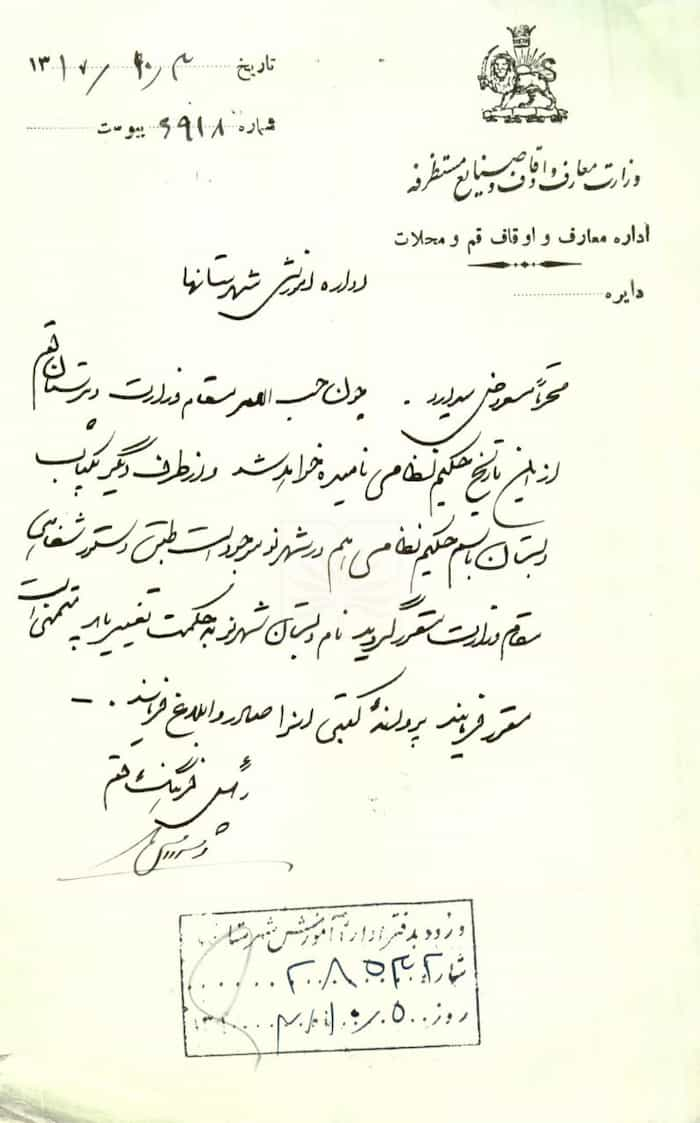 تاریخ ۳ / ۱۰ / ۱۳۱۷
شماره ۶۹۱۸ پیوست
وزارت معارف و اوقاف و صنایع مستظرفه
اداره معارف و اوقاف قم و محلات
دایره
اداره آموزش شهرستانها
محترماً معروض میدارد. چون حسب الامر مقام وزارت دبیرستان قم
از این تاریخ حکیم نظامی نامیده خواهد شد و از طرف دیگر یکباب
دبستان باسم حکیم نظامی هم در شهر نو موجود است طبق دستور شفاهی
مقام وزارت مقرر گردید نام دبستان شهر نو به حکمت تغییر یابد متمنی است
مقرر فرمایند پروانهٔ کتبی آنرا صادر و ابلاغ فرمایند. -
رئیس فرهنگ قم
ورود بدفتر اداره آموزش شهرستا
شماره ۲۸۵۴۲
روز ۵ ۱۰